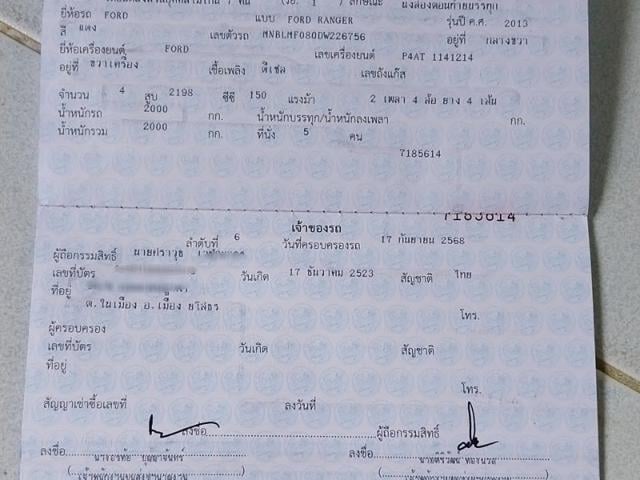 ยี่ห้อรถ FORD แบบ FORD RANGER รุ่นปี ค.ศ. 2013
สี แดง เลขตัวรถ MNBLMF080DW226756 อยู่ที่ กลางขวา
ยี่ห้อเครื่องยนต์ FORD เลขเครื่องยนต์ P4AT 1141214
อยู่ที่ ขวาเครื่อง เชื้อเพลิง ดีเซล เลขถังแก๊ส
จำนวน 4 สูบ 2198 ซีซี 150 แรงม้า 2 เพลา 4 ล้อ ยาง 4 เส้น
น้ำหนักรถ 2000 กก. น้ำหนักบรรทุก/น้ำหนักลงเพลา กก.
น้ำหนักรวม 2000 กก. ที่นั่ง 5 คน
7185614
เจ้าของรถ
ลำดับที่ 6 วันที่ครอบครองรถ 17 กันยายน 2568
ผู้ถือกรรมสิทธิ์
เลขที่บัตร วันเกิด 17 ธันวาคม 2523 สัญชาติ ไทย
ที่อยู่
ต.ในเมือง อ.เมือง ยโสธร
โทร.
ผู้ครอบครอง
เลขที่บัตร วันเกิด สัญชาติ
ที่อยู่
โทร.
สัญญาเช่าซื้อเลขที่ ลงวันที่
ลงชื่อ ผู้ถือกรรมสิทธิ์
ลงชื่อ ลงชื่อ